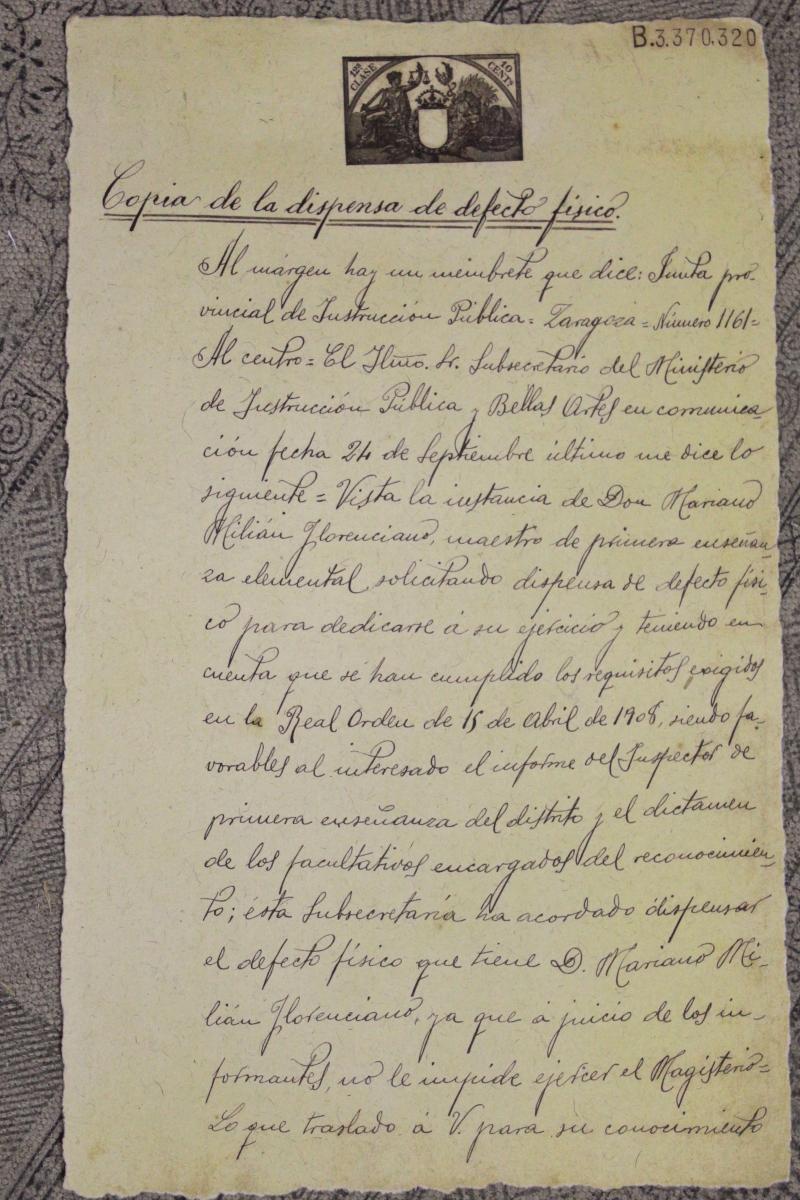 B.3.370.320
12ª CLASE
10 CENTS
Copia de la dispensa de defecto físico.
Al márgen hay un membrete que dice: Junta pro-
vincial de Instrucción Pública = Zaragoza = Número 1161 =
Al centro = El Ilmo. Sr. Subsecretario del Ministerio
de Instrucción Pública y Bellas Artes en comunica-
ción fecha 24 de Septiembre último me dice lo
siguiente = Vista la instancia de Don Mariano
Milián Florenciano, maestro de primera enseñan-
za elemental solicitando dispensa de defecto físi-
co para dedicarse á su ejercicio y teniendo en
cuenta que se han cumplido los requisitos exigidos
en la Real Orden de 15 de Abril de 1908, siendo fa-
vorables al interesado el informe del Inspector de
primera enseñanza del distrito y el dictamen
de los facultativos encargados del reconocimien-
to; ésta Subsecretaría ha acordado dispensar
el defecto físico que tiene D. Mariano Mi-
lián Florenciano, ya que á juicio de los in-
formantes, no le impide ejercer el Magisterio =
Lo que traslado á V. para su conocimiento